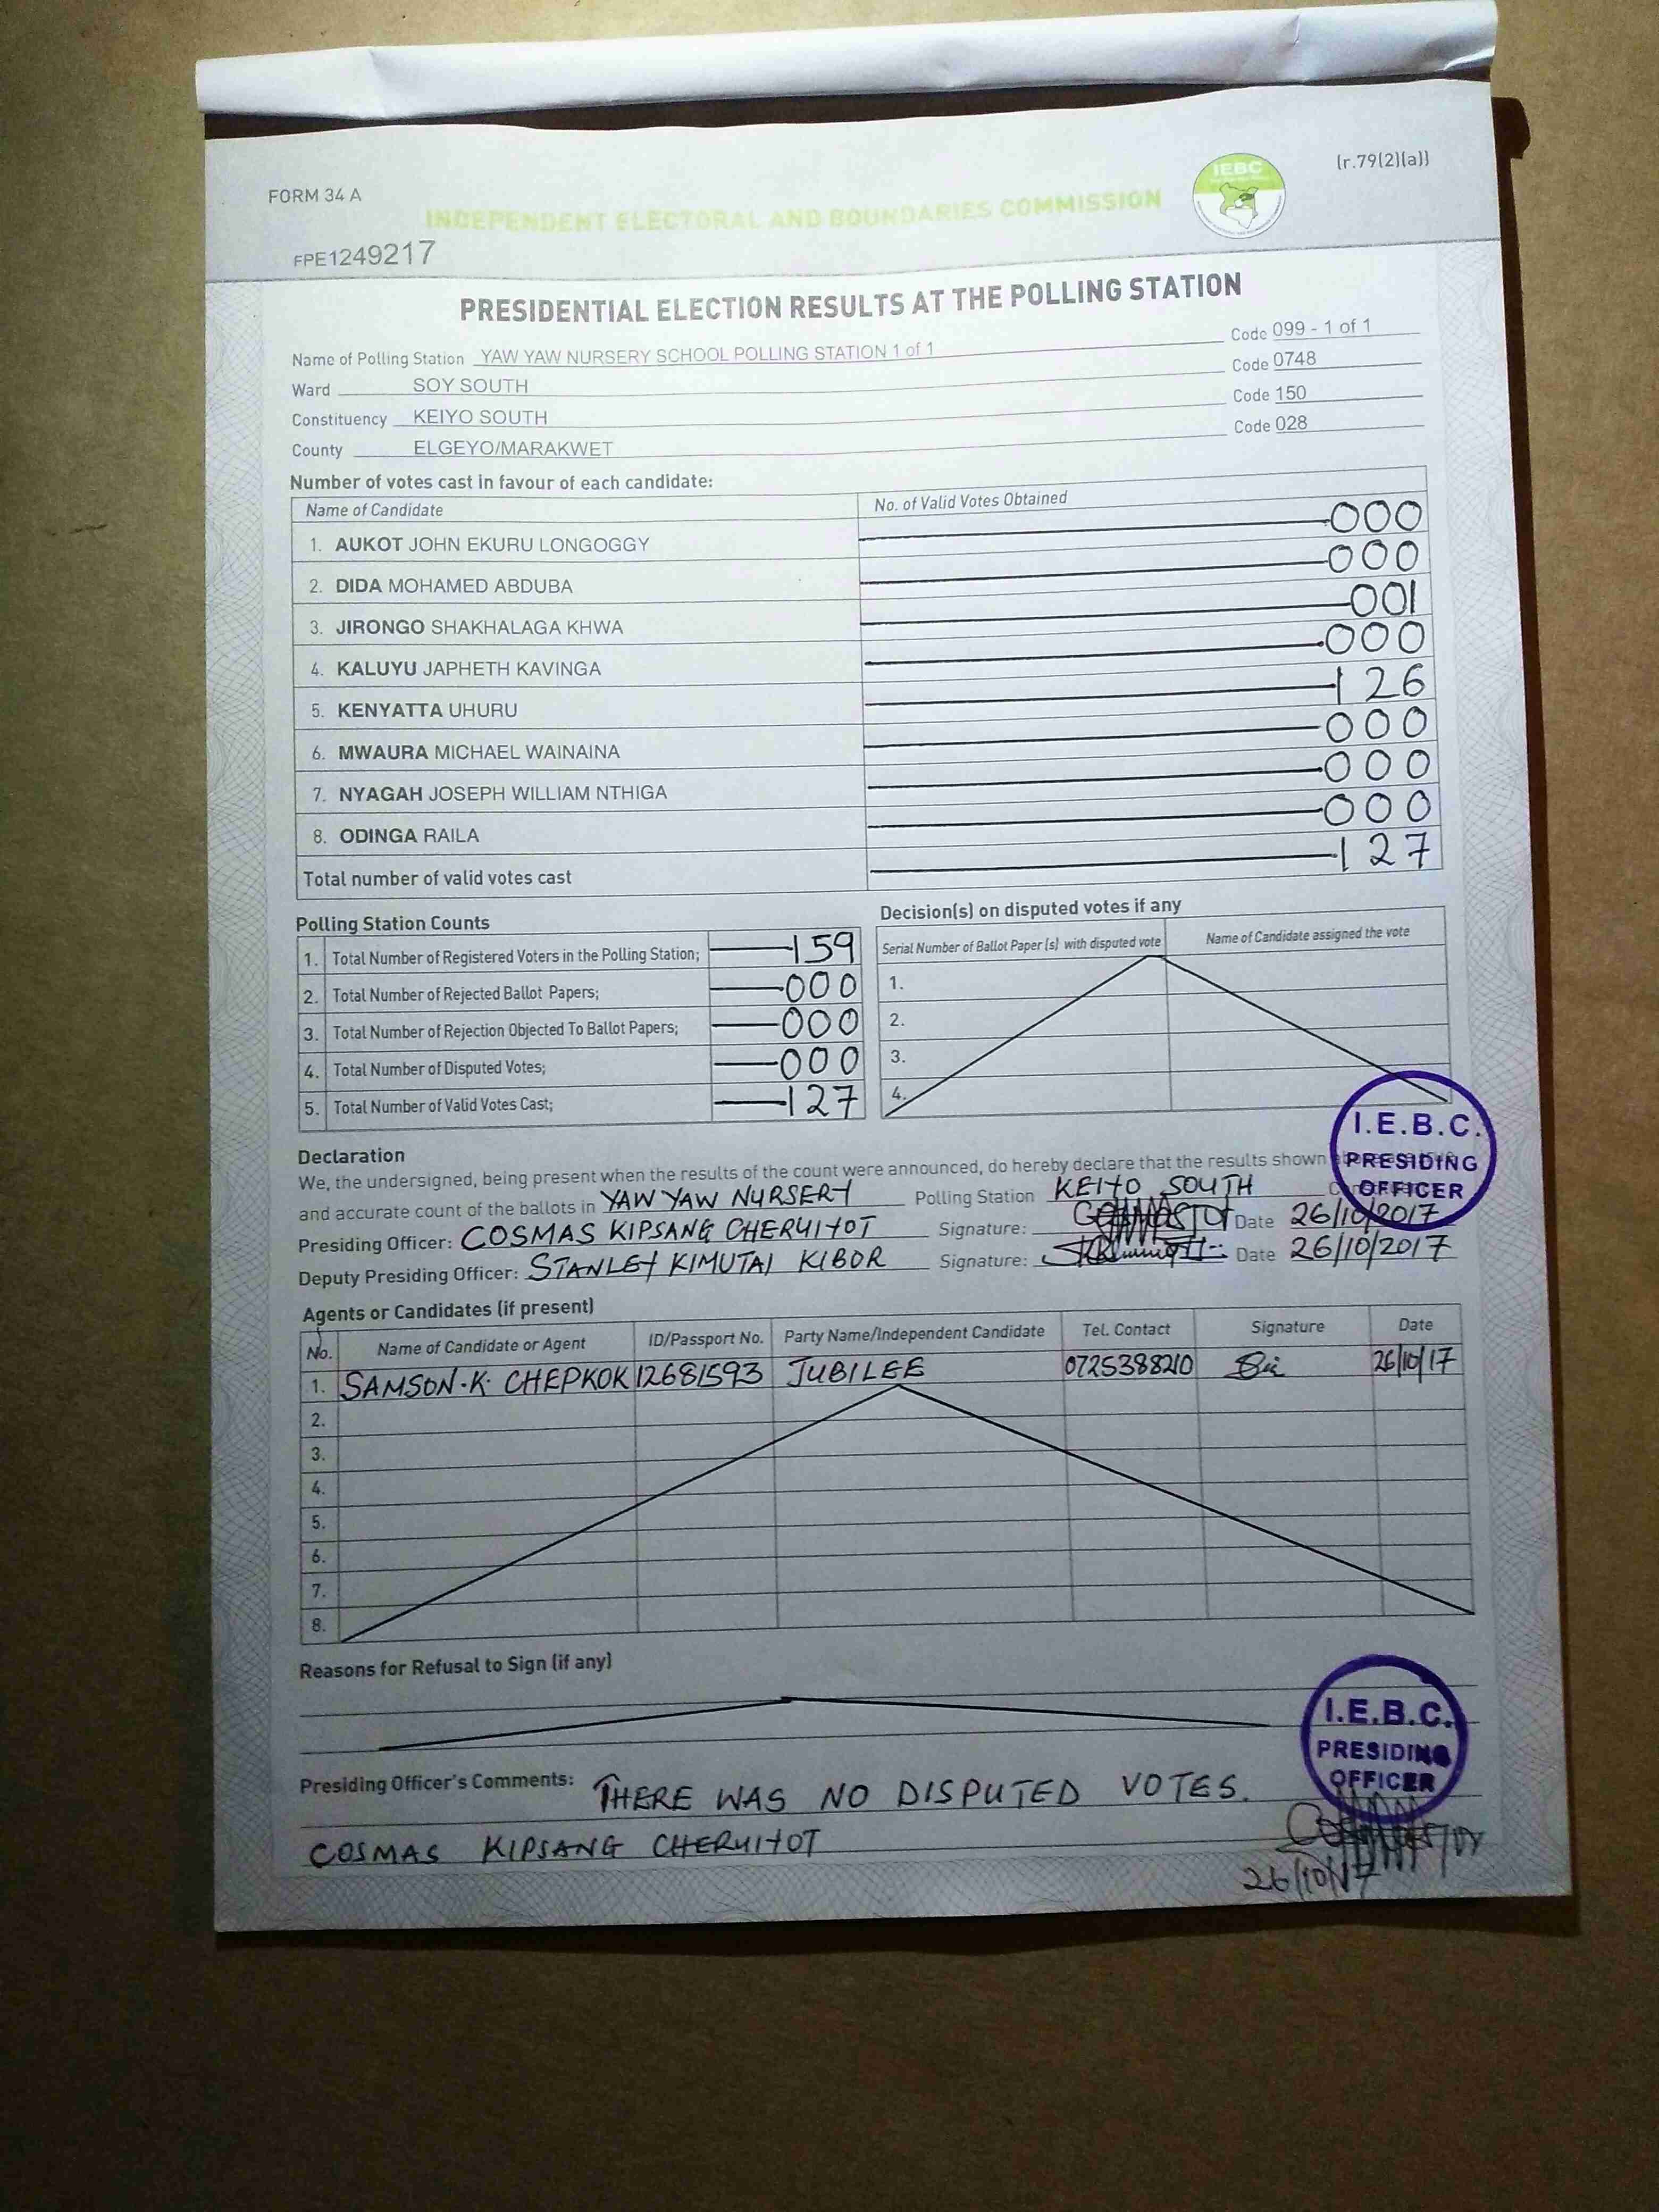 FORM 34 A
(r.79(2)(a))
IEBC
INDEPENDENT ELECTORAL AND BOUNDARIES COMMISSION
FPE1249217
PRESIDENTIAL ELECTION RESULTS AT THE POLLING STATION
Name of Polling Station YAW YAW NURSERY SCHOOL POLLING STATION 1 of 1 Code 099 - 1 of 1
Ward SOY SOUTH Code 0748
Constituency KEIYO SOUTH Code 150
County ELGEYO/MARAKWET Code 028
Number of votes cast in favour of each candidate:
Name of Candidate No. of Valid Votes Obtained
1. AUKOT JOHN EKURU LONGOGGY 000
2. DIDA MOHAMED ABDUBA 000
3. JIRONGO SHAKHALAGA KHWA 001
4. KALUYU JAPHETH KAVINGA 000
5. KENYATTA UHURU 126
6. MWAURA MICHAEL WAINAINA 000
7. NYAGAH JOSEPH WILLIAM NTHIGA 000
8. ODINGA RAILA 000
Total number of valid votes cast 127
Polling Station Counts
1. Total Number of Registered Voters in the Polling Station; 159
2. Total Number of Rejected Ballot Papers; 000
3. Total Number of Rejection Objected To Ballot Papers; 000
4. Total Number of Disputed Votes; 000
5. Total Number of Valid Votes Cast; 127
Decision(s) on disputed votes if any
Serial Number of Ballot Paper (s) with disputed vote Name of Candidate assigned the vote
1.
2.
3.
4.
I.E.B.C.
PRESIDING
OFFICER
Declaration
We, the undersigned, being present when the results of the count were announced, do hereby declare that the results shown
and accurate count of the ballots in YAW YAW NURSERY Polling Station KEIYO SOUTH
Presiding Officer: COSMAS KIPSANG CHERUIYOT Signature: Date 26/10/2017
Deputy Presiding Officer: STANLEY KIMUTAI KIBOR Signature: Date 26/10/2017
Agents or Candidates (if present)
No. Name of Candidate or Agent ID/Passport No. Party Name/Independent Candidate Tel. Contact Signature Date
1. SAMSON.K. CHEPKOK 12681593 JUBILEE 0725388210 26/10/17
2.
3.
4.
5.
6.
7.
8.
Reasons for Refusal to Sign (if any)
I.E.B.C.
PRESIDING
OFFICER
Presiding Officer's Comments: THERE WAS NO DISPUTED VOTES.
COSMAS KIPSANG CHERUIYOT
26/10/17